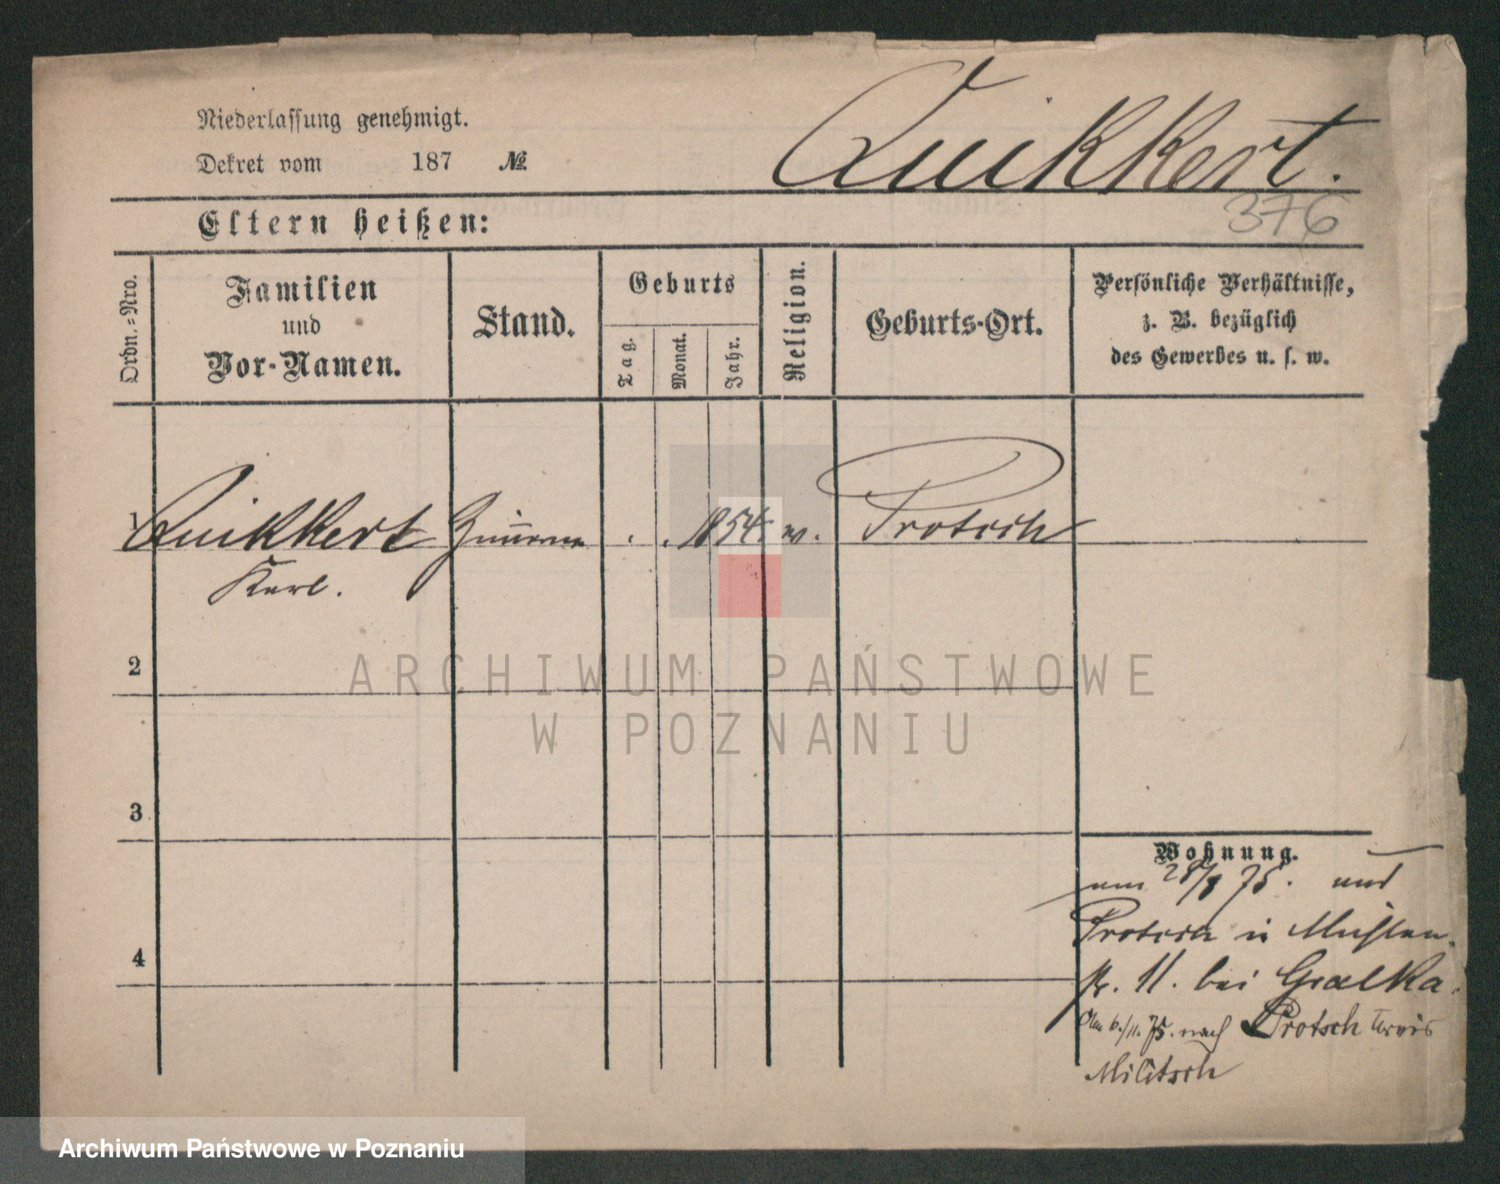 Niederlassung genehmigt.
Dekret vom 187 №.
Quikkert.
376
Eltern heißen:
Ordn.-Nro.
Familien
und
Vor-Namen.
Stand.
Geburts
Tag.
Monat.
Jahr.
Religion.
Geburts-Ort.
Persönliche Verhältnisse,
z. B. bezüglich
des Gewerbes u. s. w.
1 Quikkert 1854. Protsch
Karl.
2
3
4
Wohnung.
am 28/8 75. aus
Protsch in Mühlen
str. 11. bei Gralka.
Am 6./11. 75. nach Protsch Kreis
Militsch
ARCHIWUM PAŃSTWOWE
W POZNANIU
Archiwum Państwowe w Poznaniu